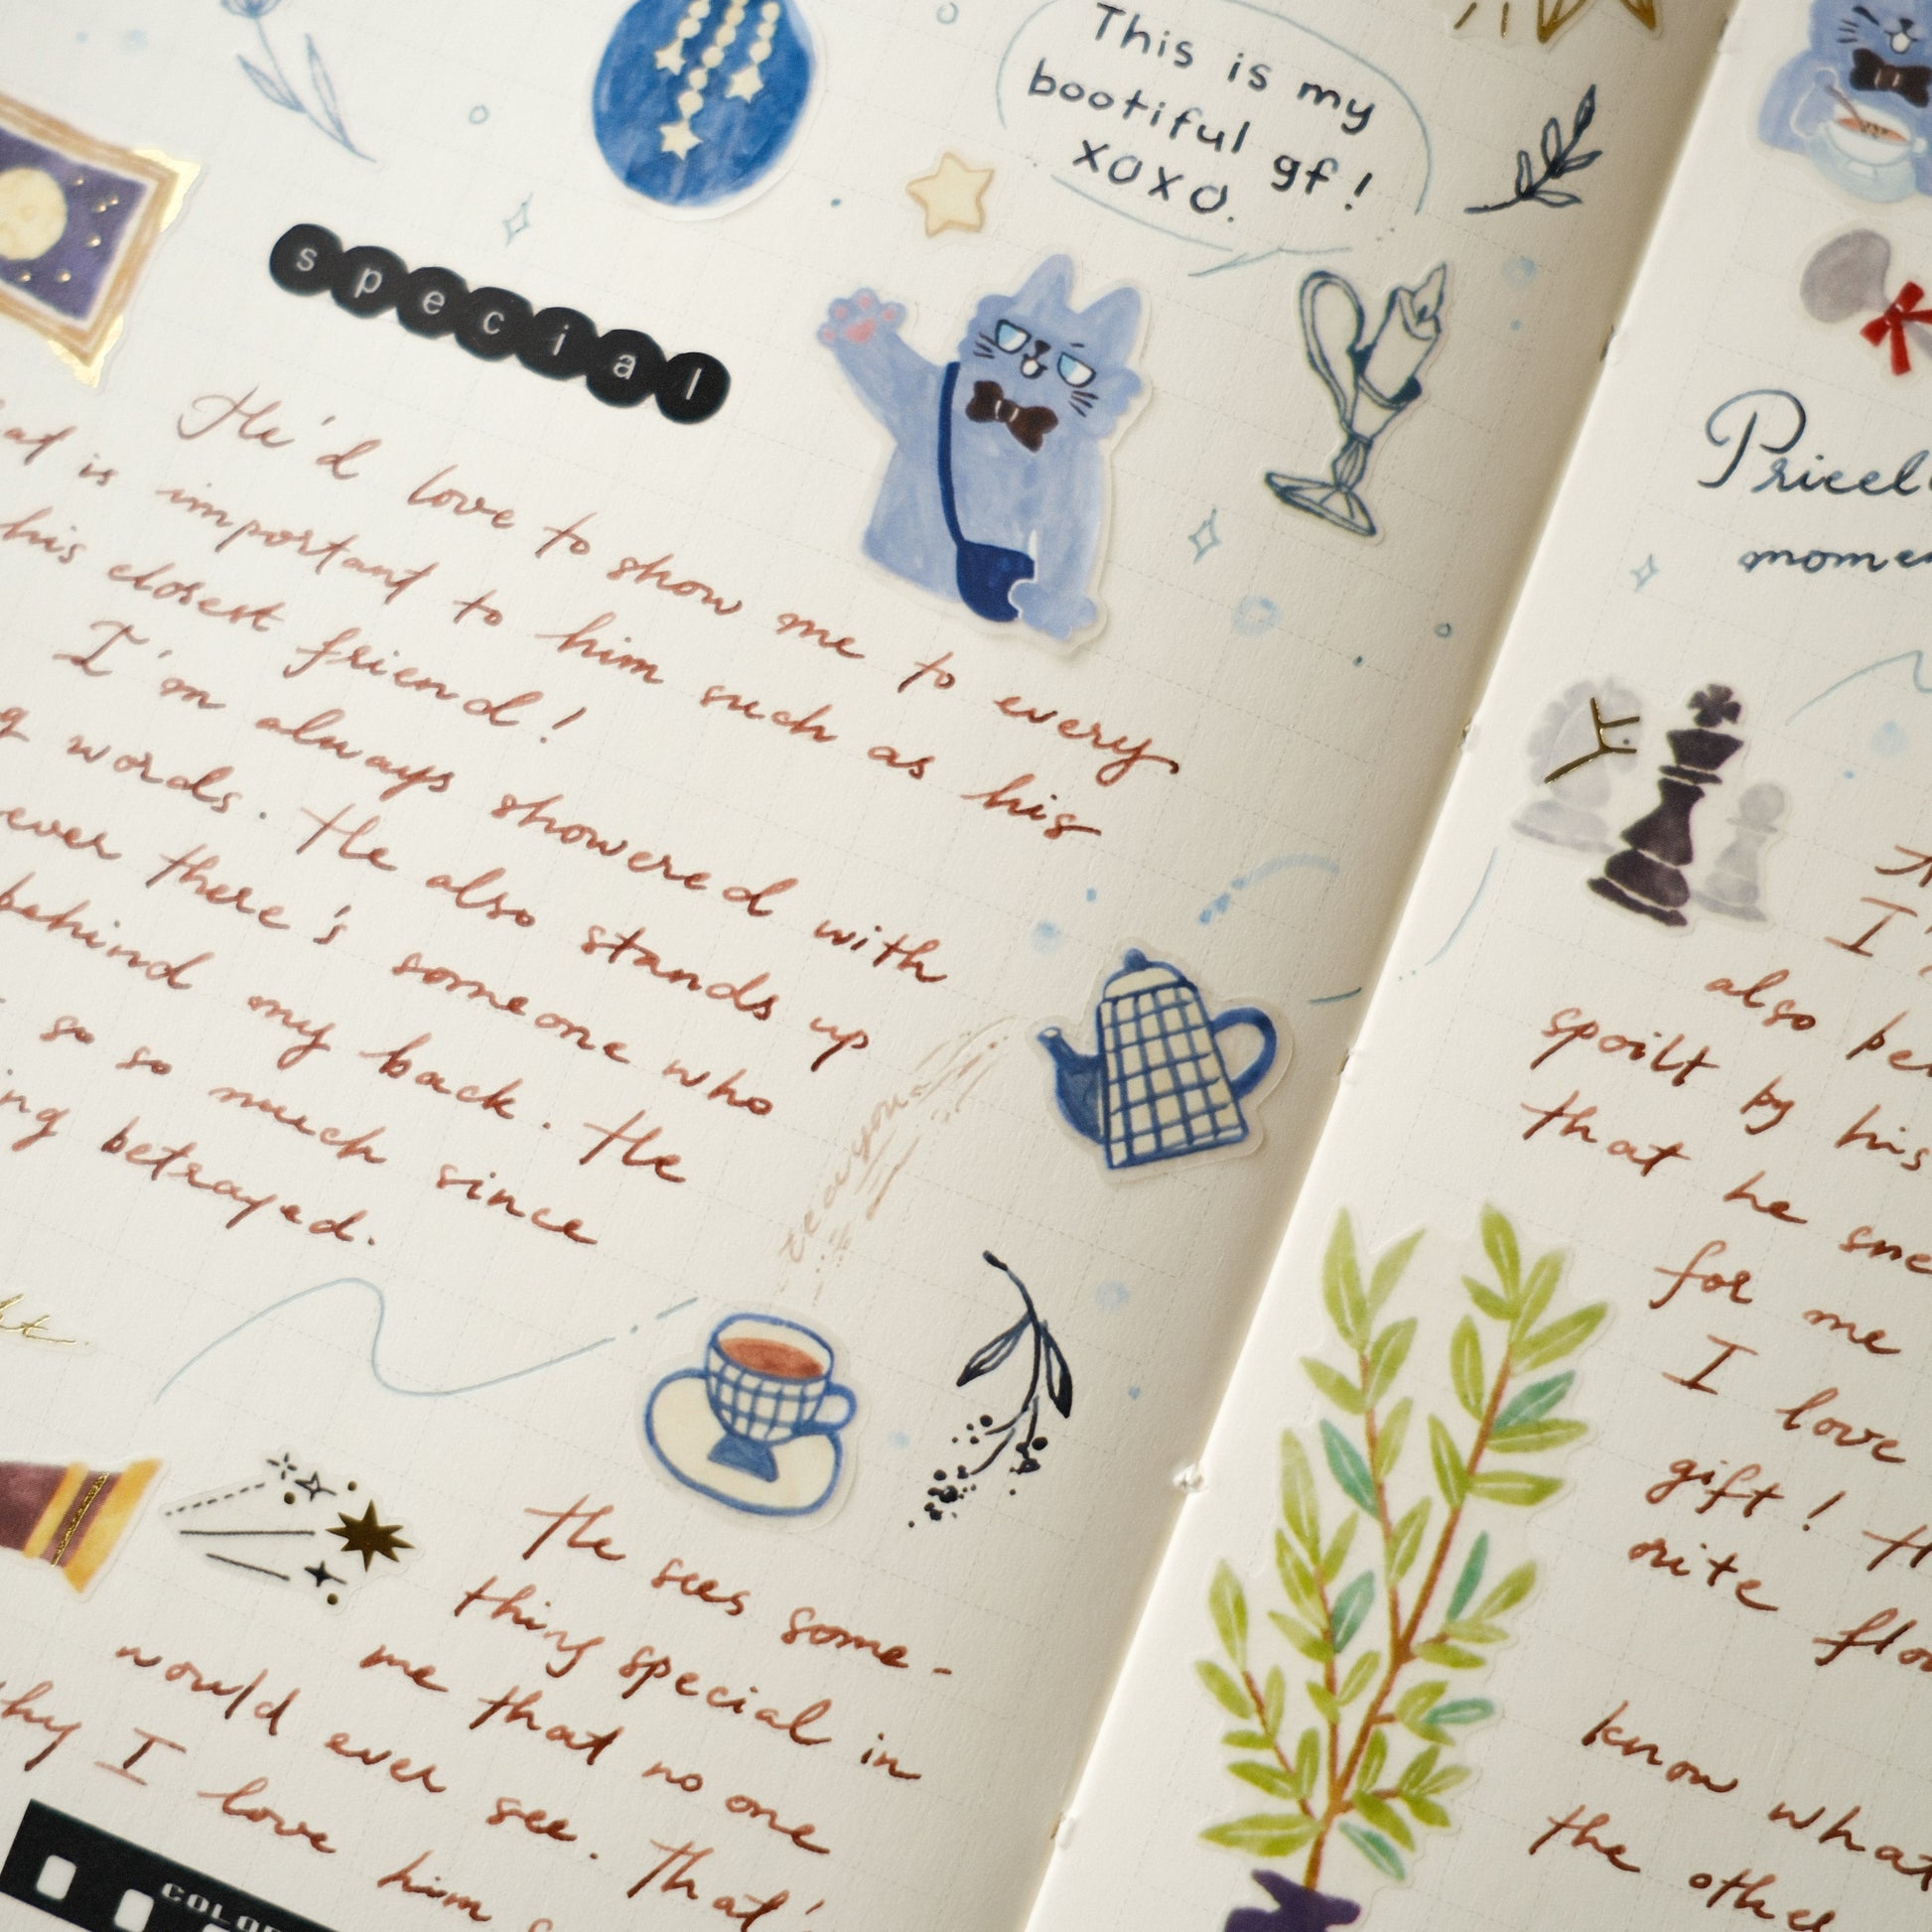 This is my
bootiful gf!
xoxo.
special
He'd love to show me to every
at is important to him such as his
his closest friend!
I'm always showered with
g words. He also stands up
ever there's someone who
behind my back. He
so so much since
ing betrayed.
tea you
ht
He sees some-
thing special in
me that no one
would ever see. That'
hy I love him s
COLOR
Pricel
mome
I
also be
spoilt by his
that he sne
for me
I love
gift! H
orite flo
know what
the othe